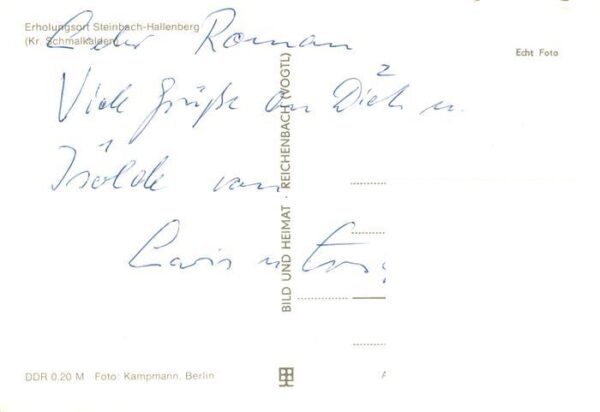 Erholungsort Steinbach-Hallenberg
(Kr. Schmalkalden)
Echt Foto
Lieber Roman
Viele Grüße an Dich u.
Isolde von
BILD UND HEIMAT · REICHENBACH (VOGTL)
DDR 0.20 M Foto: Kampmann, Berlin